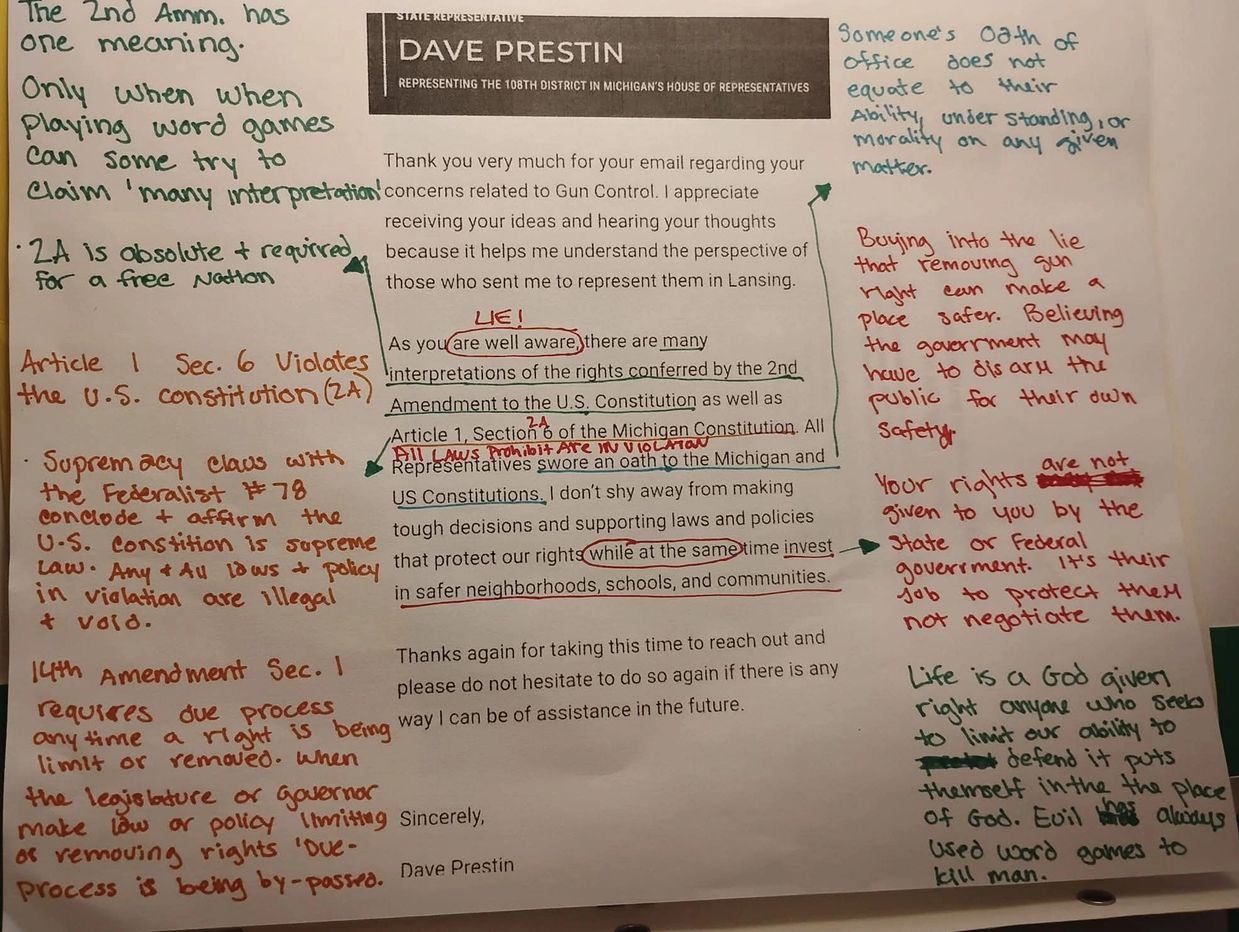 The 2nd Amm. has
one meaning.
Only when when
playing word games
can some try to
claim 'many interpretation'
· 2A is absolute + required
for a free Nation
Article 1 Sec. 6 Violates
the U.S. constitution (2A)
· Supremacy claus with
the Federalist #78
conclode + affirm the
U.S. constition is supreme
law. Any + All laws + policy
in violation are illegal
+ void.
14th Amendment Sec. 1
requires due process
anytime a right is being
limit or removed. when
the legislature or governor
make law or policy limiting
or removing rights 'Due-
process is being by-passed.
STATE REPRESENTATIVE
DAVE PRESTIN
REPRESENTING THE 108TH DISTRICT IN MICHIGAN'S HOUSE OF REPRESENTATIVES
Thank you very much for your email regarding your
concerns related to Gun Control. I appreciate
receiving your ideas and hearing your thoughts
because it helps me understand the perspective of
those who sent me to represent them in Lansing.
LIE!
As you are well aware, there are many
interpretations of the rights conferred by the 2nd
Amendment to the U.S. Constitution as well as
2A
Article 1, Section 6 of the Michigan Constitution. All
All LAWS Prohibit Are in Violation
Representatives swore an oath to the Michigan and
US Constitutions. I don't shy away from making
tough decisions and supporting laws and policies
that protect our rights while at the same time invest
in safer neighborhoods, schools, and communities.
Thanks again for taking this time to reach out and
please do not hesitate to do so again if there is any
way I can be of assistance in the future.
Sincerely,
Dave Prestin
Someone's Oath of
office does not
equate to their
Ability, under standing, or
morality on any given
matter.
Buying into the lie
that removing gun
right can make a
place safer. Believing
the goverrment may
have to disarm the
public for their own
safety.
Your rights are not
given to you by the
State or Federal
goverrment. It's their
Job to protect them
not negotiate them.
Life is a God given
right anyone who seeks
to limit our ability to
defend it puts
themself in the the place
of God. Evil has always
used word games to
kill man.